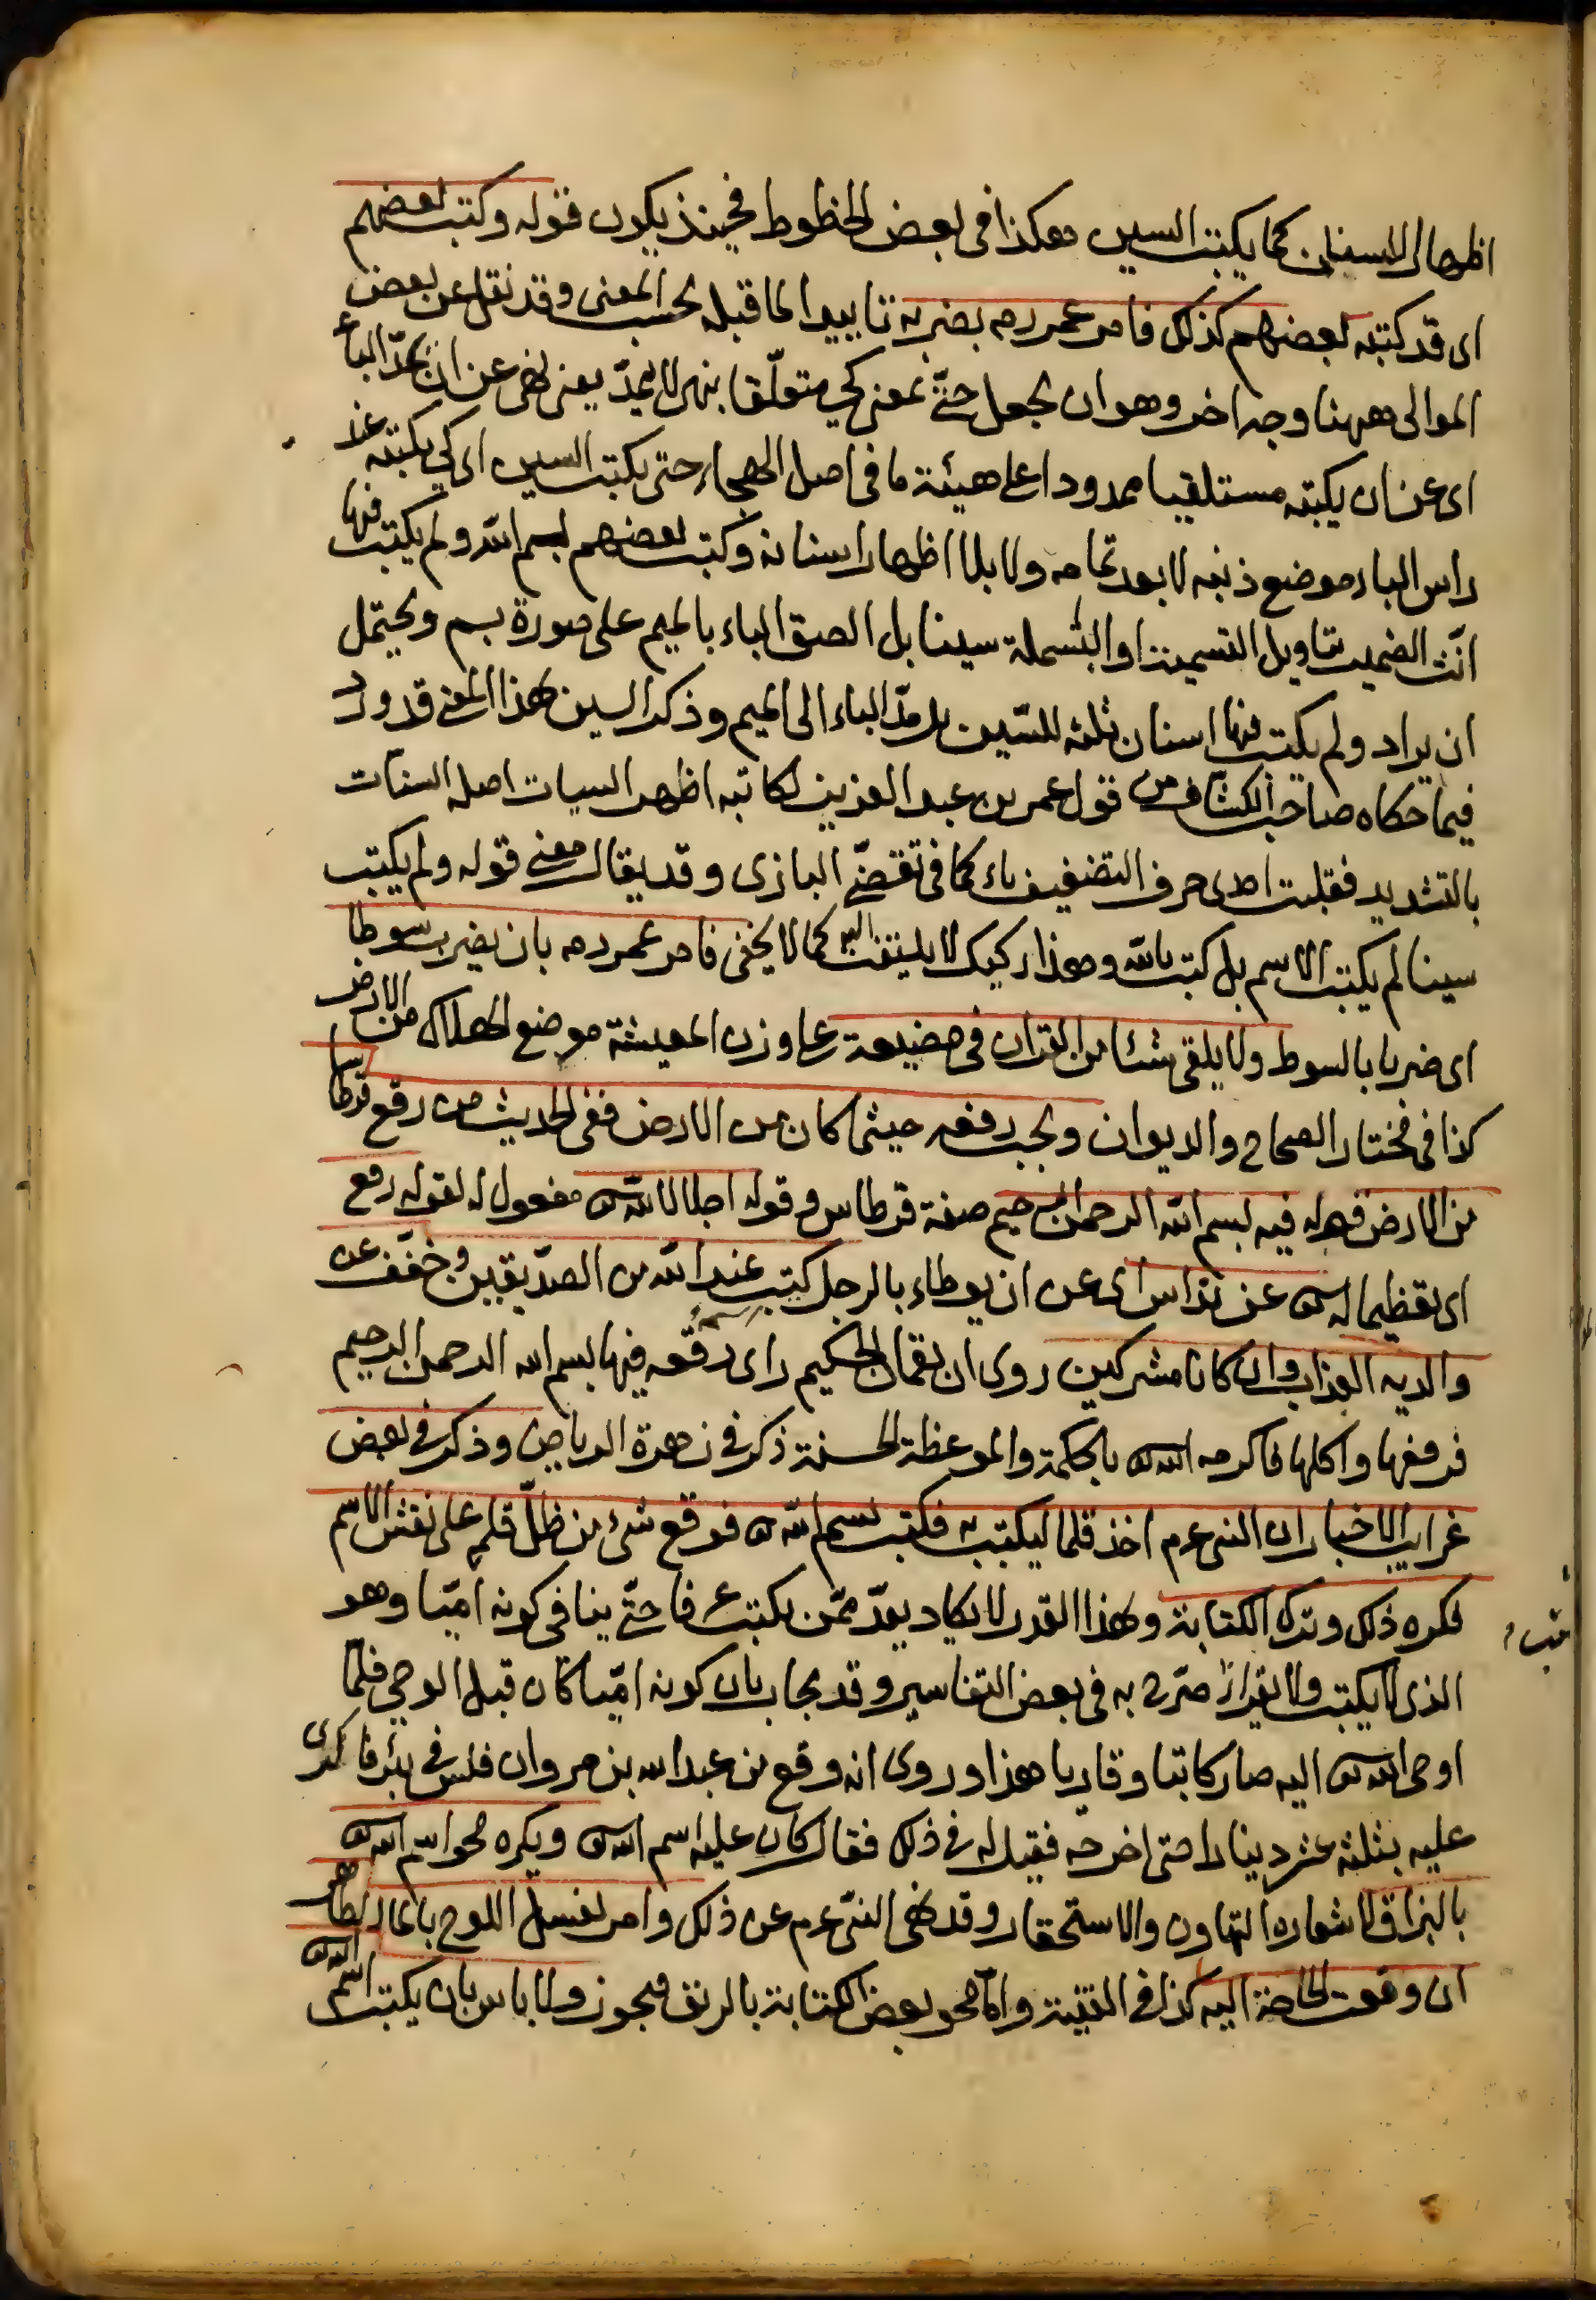 اظهار الاسنان كما يكتب السين هكذا فى بعض الخطوط فحينئذ يكون قوله وكتب بعضهم
اى قد كتبه بعضهم كذلك فامر عمر رمه بضربه تاييدا لما قبله بحسب المعنى وقد نقل عن بعض
الموالى ههنا وجه اخر وهو ان يجعل حتّى بمعنى كى متعلّقا بنهى لا يمدّ يعنى نهى عن ان يمدّ الباء
اى عن ان يكتبه مستلقيا ممدودا على هيئة ما فى اصل الهجاء حتى يكتب السين اى كى يكتبه عند
راس الباء موضع ذنبه لا بعد تمامه ولا بلا اظهار اسنانه وكتب بعضهم بسم الله ولم يكتب فيها
انّث الضمير بتاويل التسمية او البسملة سينا بل الصق الباء بالميم على صورة بسم ويحتمل
ان يراد ولم يكتب فيها اسنان ثلثه للسّين بل مدّ الباء الى الميم وذكر السين بهذا المعنى قد ورد
فيما حكاه صاحب الكشاف من قول عمر بن عبد العزيز لكاتبه اظهر السيات اصله السنّات
بالتشديد فقلبت احدى حرف التضعيف ياء كما فى تقضّى البازى وقد يقال معنى قوله ولم يكتب
سينا لم يكتب الاسم بل كتب بالله وهذا ركيك لا يلتفت اليه كما لا يخفى فامر عمر رمه بان يضرب سوطا
اى ضربا بالسوط ولا يلقى شئا من القران فى مضيعة على وزن المعيشة موضع الهلاك من الارض
كذا فى مختار الصحاح والديوان ويجب رفعه حيثما كان من الارض ففى الحديث من رفع قرطاسا
من الارض قوله فيه بسم الله الرحمن الرحيم صفة قرطاس وقوله اجلالا لله تعالى مفعول له لقوله رفع
اى تعظيما له تعالى عن ان يداس اى عن ان يوطاء بالرجل كتب عند الله من الصدّيقين وخفّف عن
والديه العذاب وان كانا مشركين روى ان لقمان الحكيم راى رقعه فيها بسم الله الرحمن الرحيم
فرفعها واكلها فاكرمه الله تعالى بالحكمة والموعظة الحسنة ذكر فى زهرة الرياض وذكر فى بعض
غرايب الاخبار ان النبى عم اخذ قلما ليكتب به فكتب بسم الله تعالى فوقع شئ من ظلّ قلمه على نقش الاسم
فكره ذلك وترك الكتابة وبهذا القدر لا يكاد يعدّ ممّن يكتب عرفا حتّى ينافى كونه امّيا وهو
الذى لا يكتب ولا يقرأ صرّح به فى بعض التفاسير وقد يجاب بان كونه امّيا كان قبل الوحى فلمّا
اوحى الله تعالى اليه صار كاتبا وقاريا هذا وروى انه وقع من عبد الله بن مروان فلس فى بئر فاكترى
عليه بثلثة عشر دينارا حتى اخرجه فقيل له فى ذلك فقال كان عليه اسم الله تعالى ويكره محو اسم الله تعالى
بالبزاق لاشعاره التهاون والاستحقار وقد نهى النبىّ عم عن ذلك وامر بغسل اللوح بالماء الطاهر
ان وقعت الحاجة اليه كذا فى القنية وامّا محو بعض الكتابة بالريق فيجوز ولا باس بان يكتب اسم الله تعالى